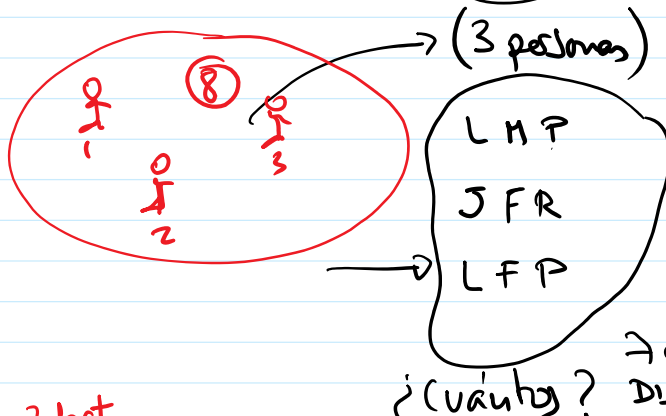 (3 personas)
8
1
2
3
L M P
J F R
L F P
¿Cuántos?